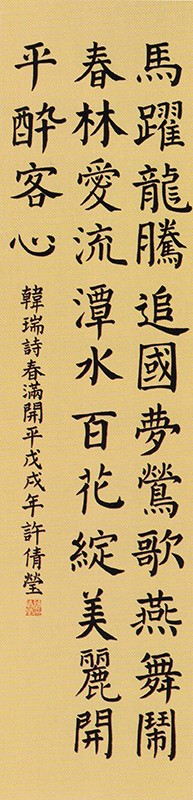 馬躍龍騰追國夢鶯歌燕舞鬧
春林愛流潭水百花綻美麗開
平醉客心
韓瑞詩春滿開平戊戌年許倩瑩